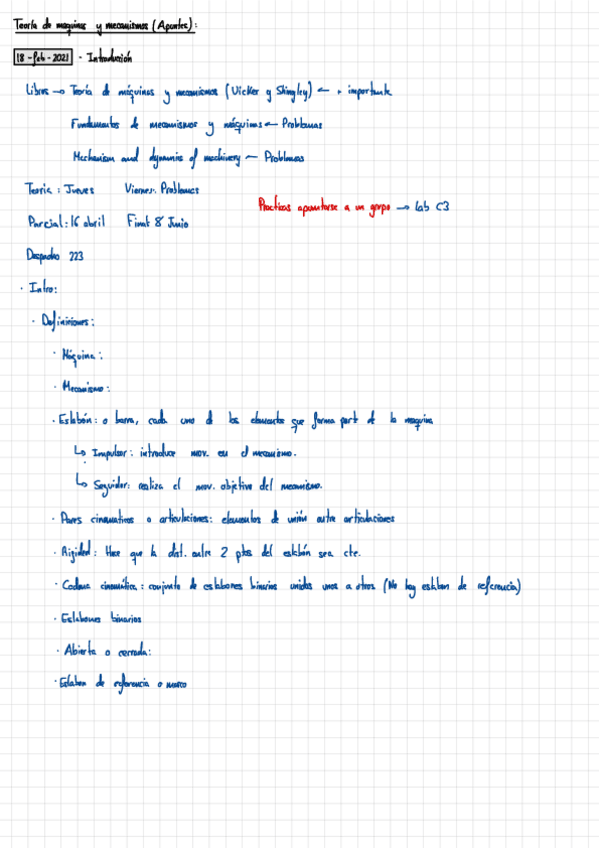 Teoría de maquinas y mecanismos (Apuntes):
18-feb-2021 · Introducción
Libros → Teoría de máquinas y mecanismos (Uicker y Shingley) ← + importante
Fundamentos de mecanismos y máquinas ← Problemas
Mechanism and dynamics of machinery ← Problemas
Teoría: Jueves Viernes: Problemas
Practicas apuntarse a un grupo → Lab C3
Parcial: 16 abril Final 8 Junio
Despacho 223
· Intro:
· Definiciones:
· Máquina:
· Mecanismo:
· Eslabón: o barra, cada uno de los elementos que forma part de la maquina
↳ Impulsor: introduce mov. en el mecanismo.
↳ Seguidor: realiza el mov. objetivo del mecanismo.
· Pares cinematicos o articulaciones: elementos de unión entre articulaciones
· Rigided: Hace que la dist. entre 2 ptos del eslabón sea cte.
· Cadena cinemática: conjunto de eslabones binarios unidos unos a otros (No hay eslabon de referencia)
· Eslabones binarios
· Abierta o cerrada:
· Eslabon de referencia o marco